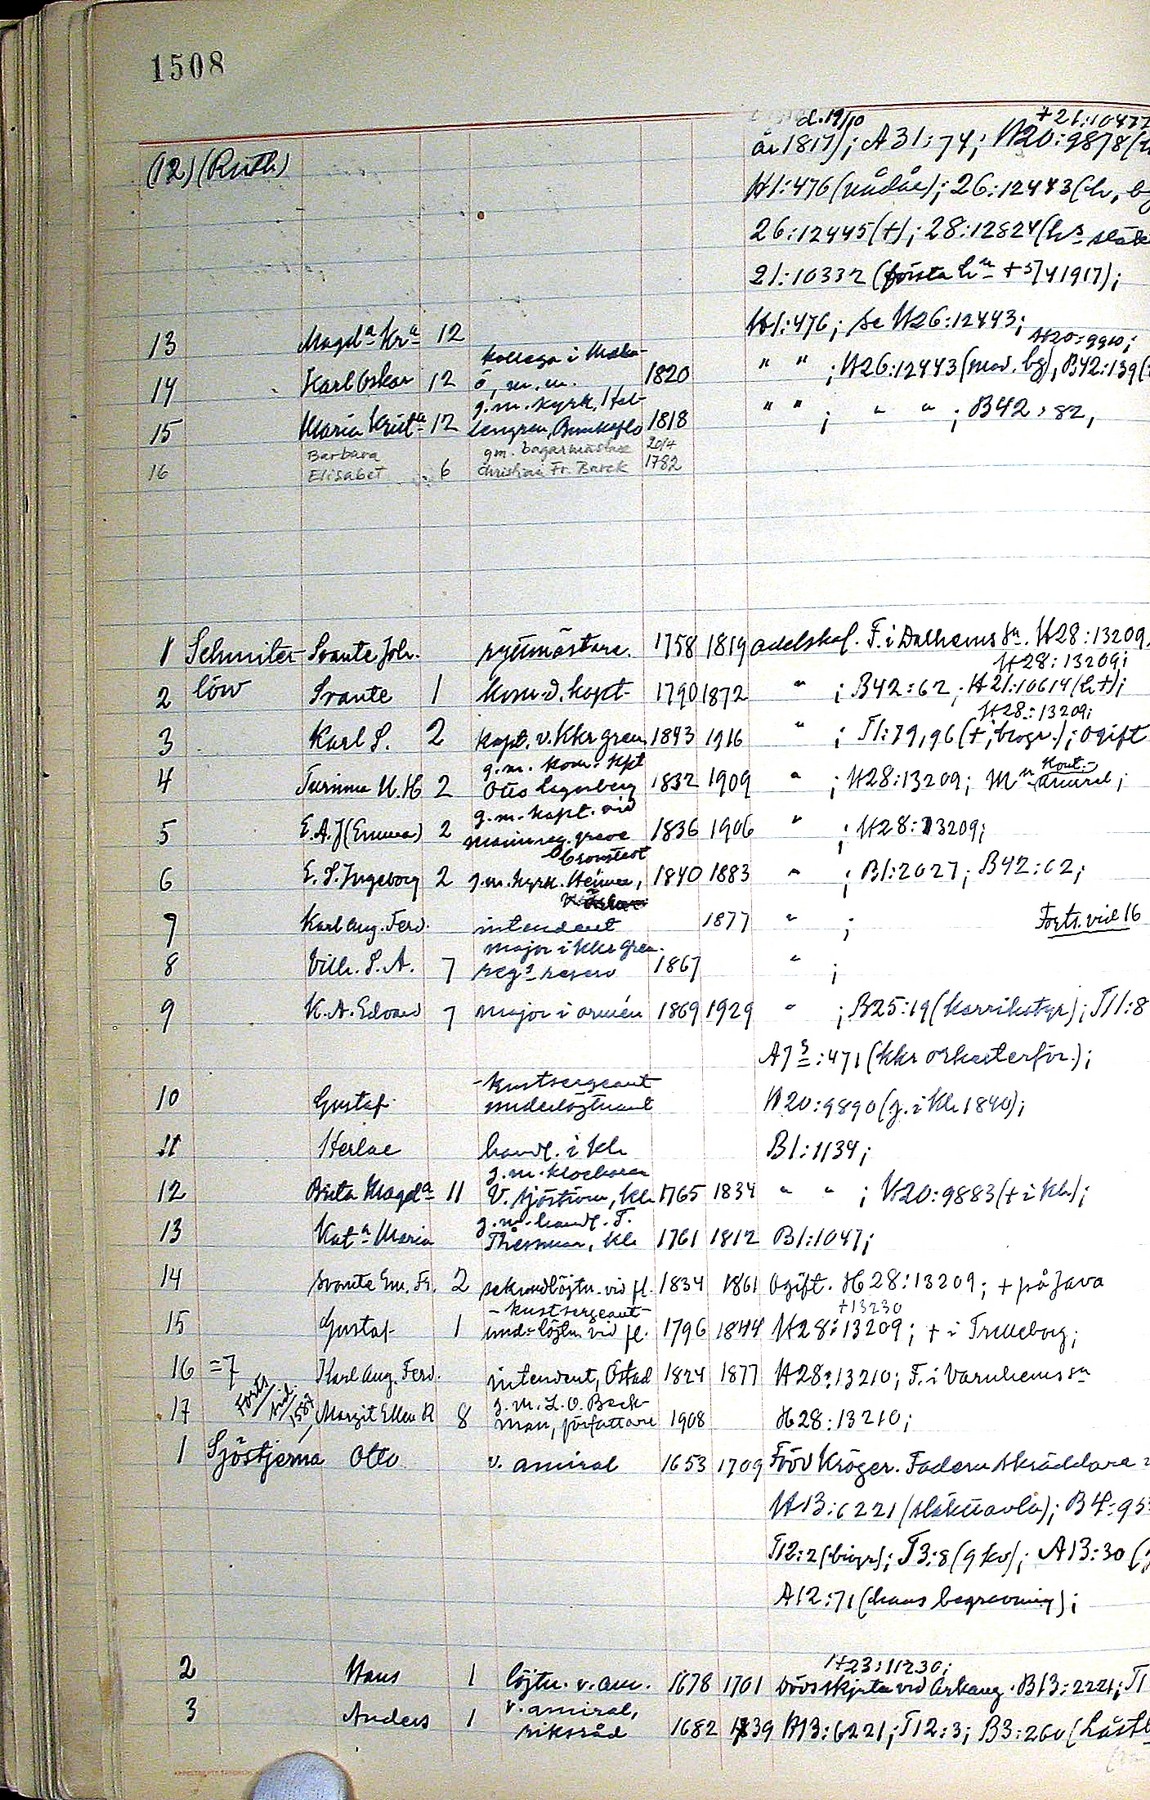 1508
d. 19/10 + 21:10477
(12) (Ruth) år 1817); A 31:74; H20:9878 (
H1:476 (nådår); 26:12443 (h, bg
26:12445 (+); 28:12824 (hs släk
21:10332 (första hn + 5/4 1917);
13 Magda Kra 12 H1:476; se H26:12443;
H20:9910;
kollega i Malm-
14 Karl Oskar 12 ö, m. m. 1820 " " ; H26:12443 (mod. bg), B42:139 (
g.m. kyrk. Hal-
15 Maria Krista 12 lengren, Bunkeflo 1818 " " ; " " ; B42:82,
Barbara gm. bagarmästare 20/4
16 Elisabet 6 Christian Fr. Barck 1782
1 Schmiter- Svante Joh. ryttmästare. 1758 1819 adelskal. F. i Dalhems sn. H28:13209.
H28:13209;
2 löw Svante 1 kom.d. kapt. 1790 1872 " ; B42:62; H21:10614 (h +);
H28:13209;
3 Karl S. 2 kapt. v. Kkr gren. 1843 1916 " ; T1:79,96 (+, biogr.); ogift
g.m. kom. kpt
4 M. H 2 Otto Lagerberg 1832 1909 " ; H28:13209; Mn Kont.-amiral;
g.m. kapt. vid
5 E. A. J (Emma) 2 marinreg. greve 1836 1906 " ; H28:13209;
Cronstedt
6 E. S. Ingeborg 2 g.m. kyrk. 1840 1883 " ; B1:2027; B42:62;
7 Karl Aug. Ferd. intendent 1877 " ; Forts. vid 16
major i Kkr Gren.
8 Vilh. S. A. 7 regs reserv 1867 " ;
9 K. A. Edvard 7 major i armén 1869 1929 " ; B25:19 (karrikatyr); T11:8
A73:471 (kkr orkesterför.);
- kustsergeant
10 Gustaf underlöjtnant H20:9890 (g. i Kh 1840);
11 handl. i Kh B1:1134;
g.m. klockaren
12 Brita Magda 11 V. Sjöström, Kh 1765 1834 " " ; H20:9883 (+ i Kh);
g.m. handl. T.
13 Kata Maria Thessman, Kh 1761 1812 B1:1047;
14 Svante Em. Fr. 2 sekundlöjtn. vid fl. 1834 1861 Ogift. H28:13209; + på Java
- kustsergeant - +13230
15 Gustaf 1 und-löjtn vid fl. 1796 1844 H28:13209; + i Trelleborg;
16 =7 Karl Aug. Ferd. intendent, Östad 1824 1877 H28:13210; F. i Varnhems sn
Forts vid 1587 g.m. L. O. Beck-
17 Margit Ellen R 8 man, författare 1908 H28:13210;
1 Sjöstjerna Otto v. amiral 1653 1709 Fööv Kröger. Fadern skräddare
H13:6221 (släkttavla); B4:95
T12:2 (biogr); T3:8 (gkv); A13:30 (
A12:71 (hans begravning);
H23:11230;
2 Hans 1 löjtn. v. am. 1678 1701 Dödsskjuten vid Arkang. B13:2221; T1
v. amiral,
3 Anders 1 riksråd 1682 1739 H13:6221; T12:3; B3:260 (